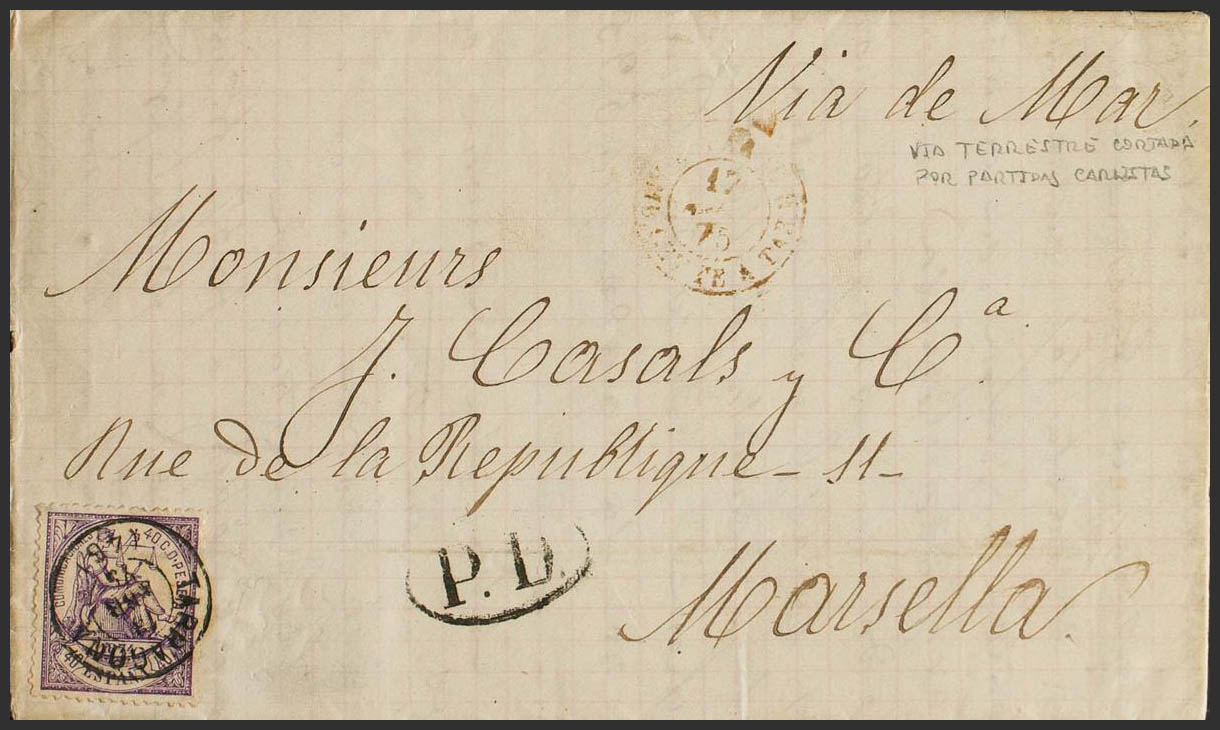 Via de Mar.
VIA TERRESTRE CORTADA
POR PARTIDAS CARLISTAS
17
75
TE A TARR
Monsieurs
J. Casals y Cª
Rue de la Republique - 11 -
P.D.
Marsella.
COMUNICACIONES 40 C. DE PESETA
TARRAGONA
ESPAÑA